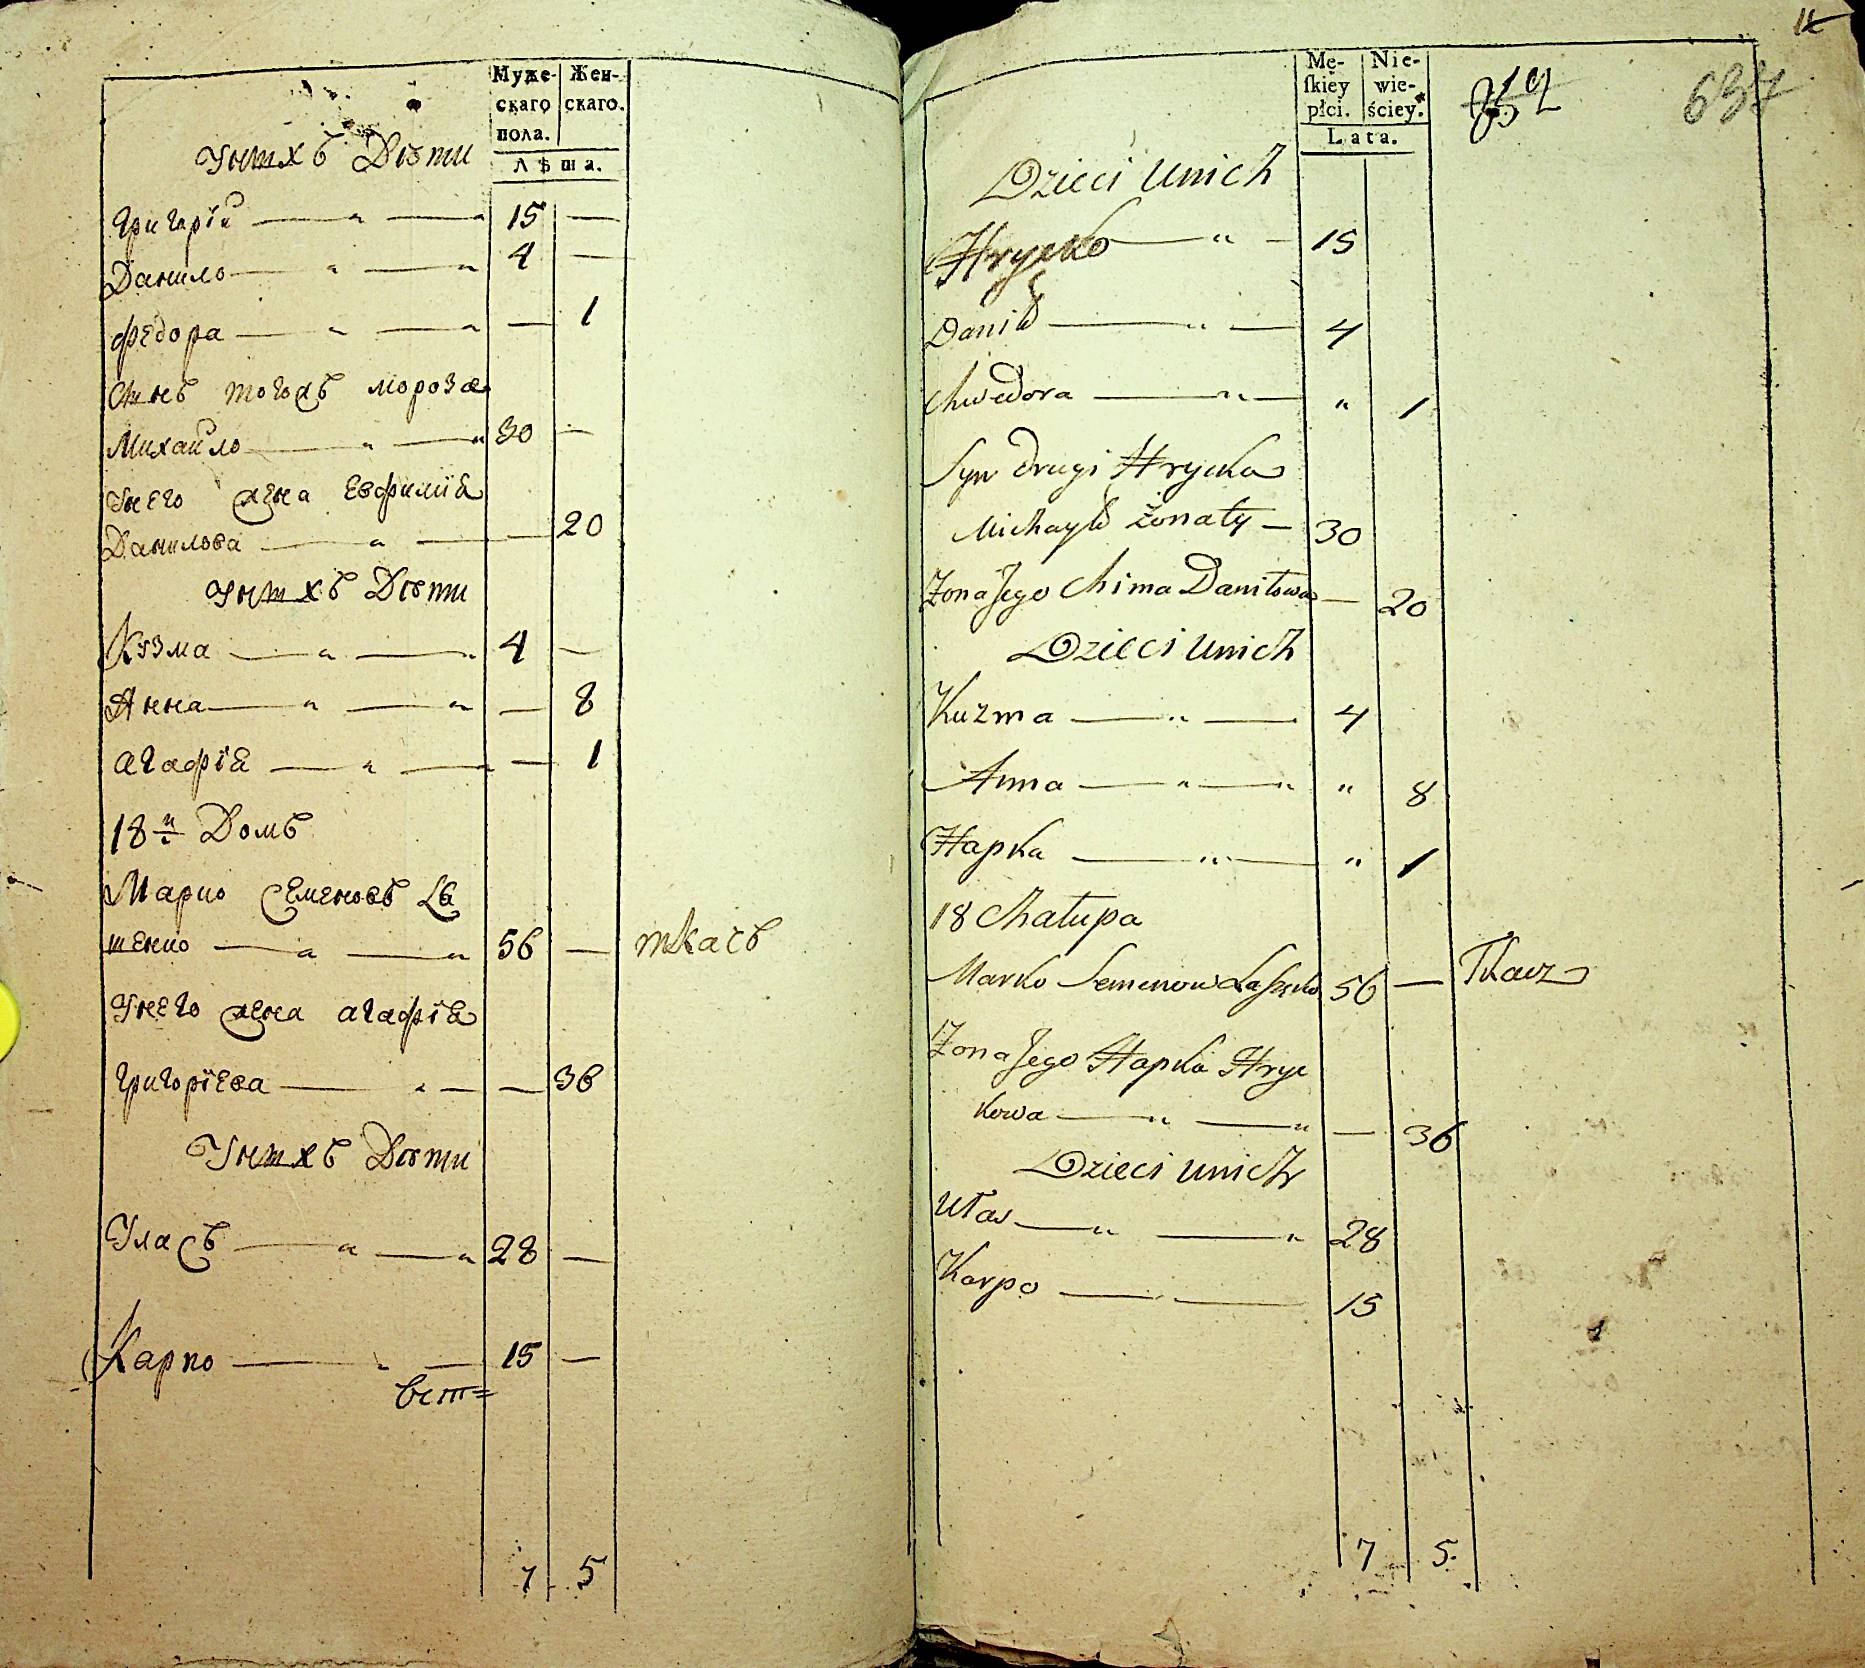 Муже-
скаго
пола.
Жен-
скаго.
Лѣта.
Унихъ Дѣти
Григорій — „ — 15 —
Данило — „ — „ 4 —
Федора — „ — „ — 1
Сынъ тогожъ мороза
Михайло — „ — „ 30 —
Унего жена Евфимія
Данилова — „ — — 20
Унихъ Дѣти
Кузма — „ — „ 4 —
Анна — „ — „ — 8
Агафія — „ — — 1
18й Домъ
Марко Семеновъ Ла
шенко — „ — „ 56 — ткачъ
Унего жена агафія
Григоріева — „ — — 36
Унихъ Дѣти
Уласъ — „ — „ 28 —
Карпо — „ — 15 —
7 5
Mę-
ſkiey
płci.
Nie-
wie-
ściey.
Lata.
637
Dzieci unich
Hrycko — „ — 15
Daniło — „ — 4
Chwedora — „ — „ 1
Syn drugi Hrycka
Michayło żonaty — 30
Żona Jego Chima Daniłowa — 20
Dzieci unich
Kuzma — „ — 4
Anna — „ — „ „ 8
Hapka — „ — „ 1
18 Chałupa
Marko Semenow Laszenko 56 — Tkacz
Żona Jego Hapka Hryc
kowa — „ — „ — 36
Dzieci unich
Ułas — „ — „ 28
Karpo — — 15
7 5